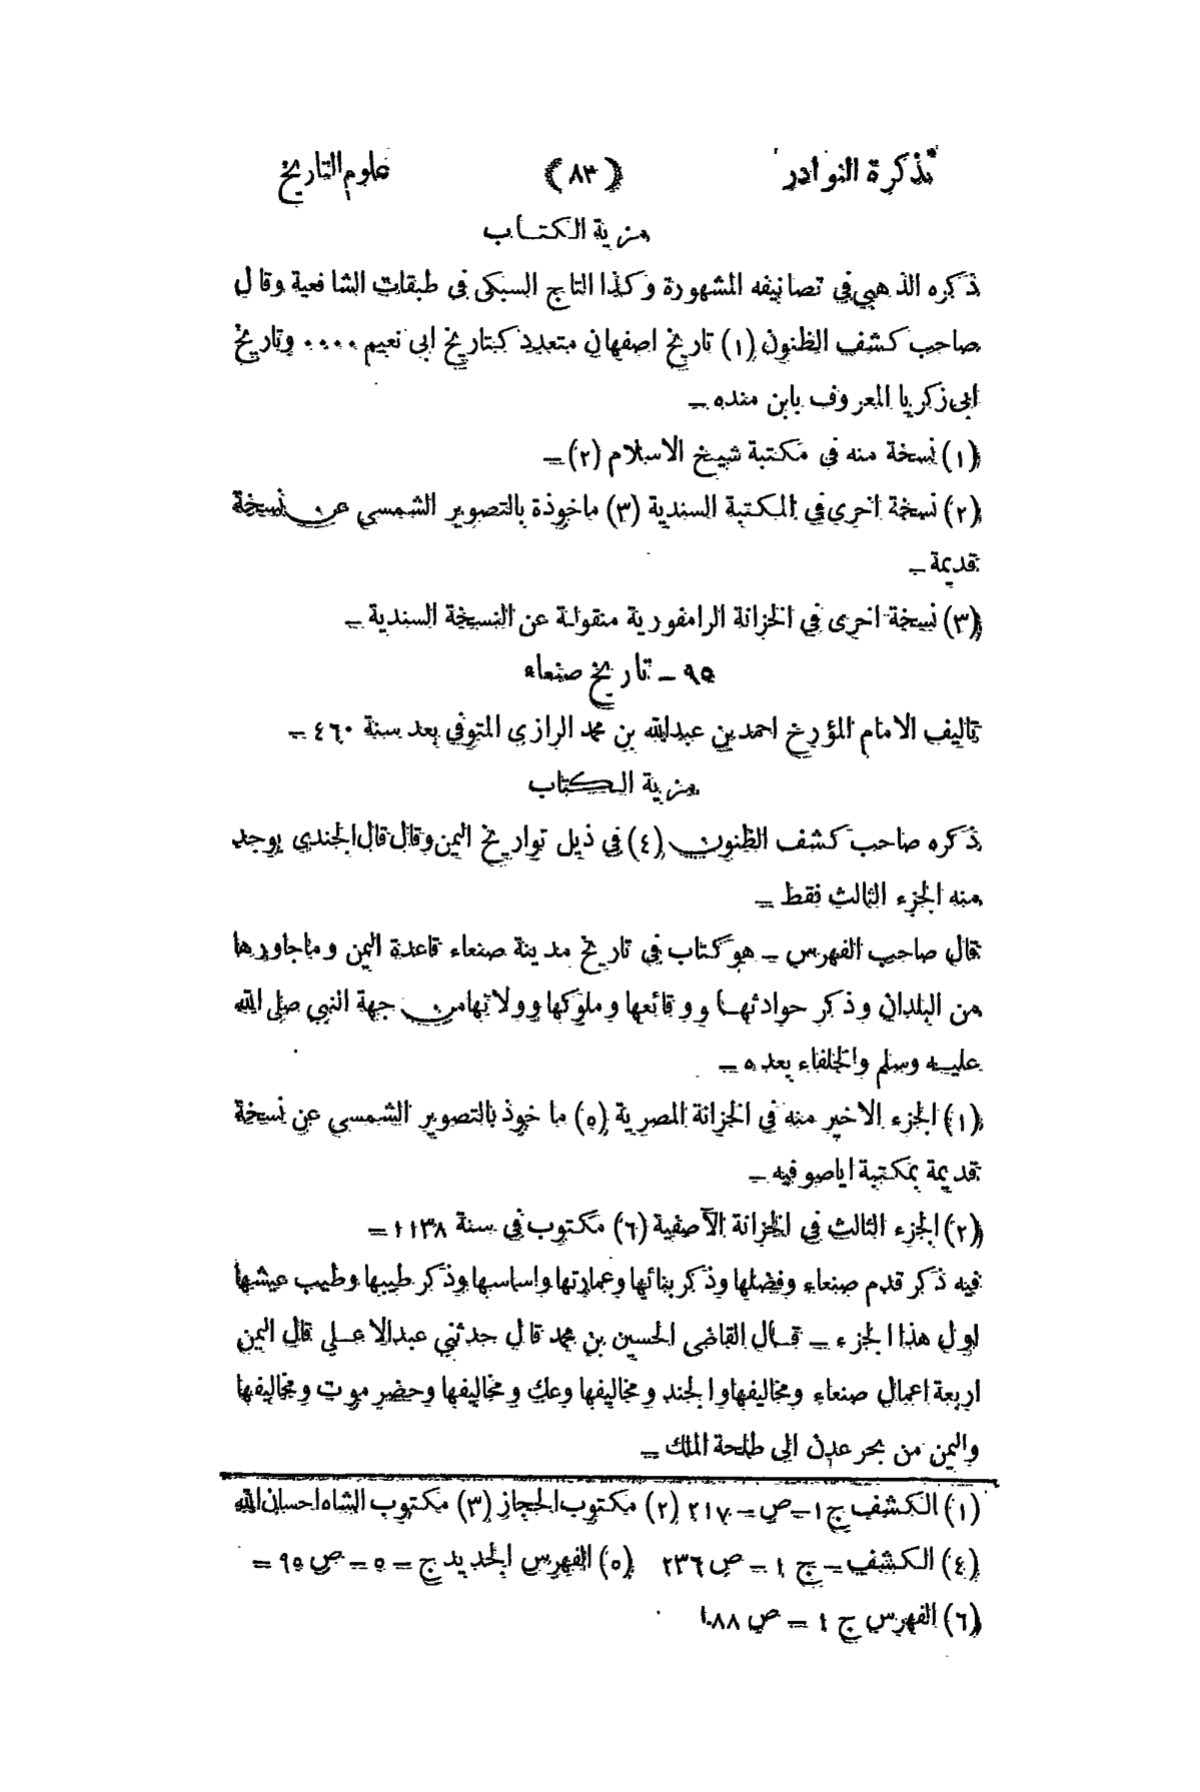 تذكرة النوادر (٨٣) علوم التاريخ
مزية الكتاب
ذكره الذهبي في تصانيفه المشهورة وكذا التاج السبكى فى طبقات الشافعية وقال
صاحب كشف الظنون (١) تاريخ اصفهان متعدد كتاريخ ابى نعيم .... وتاريخ
ابى زكريا المعروف بابن منده ــ
(١) نسخة منه فى مكتبة شيخ الاسلام (٢) ــ
(٢) نسخة اخرى في المكتبة السندية (٣) ماخوذة بالتصوير الشمسي عن نسخة
قديمة ــ
(٣) نسخة اخرى في الخزانة الرامفورية منقولة عن النسخة السندية ــ
٩٥ ــ تاريخ صنعاء
تاليف الامام المؤرخ احمد بن عبدالله بن محمد الرازى المتوفي بعد سنة ٤٦٠ ــ
مزية الكتاب
ذكره صاحب كشف الظنون (٤) في ذيل تواريخ اليمن وقال قال الجندي يوجد
منه الجزء الثالث فقط ــ
قال صاحب الفهرس ــ هو كتاب في تاريخ مدينة صنعاء قاعدة اليمن وماجاورها
من البلدان وذكر حوادثها ووقائعها وملوكها وولاتها من جهة النبي صلى الله
عليه وسلم والخلفاء بعده ــ
(١) الجزء الاخير منه في الخزانة المصرية (٥) ما خوذ بالتصوير الشمسي عن نسخة
قديمة بمكتبة اياصوفيه ــ
(٢) الجزء الثالث في الخزانة الآصفية (٦) مكتوب في سنة ١١٣٨ ــ
فيه ذكر قدم صنعاء وفضلها وذكر بنائها وعمارتها واساسها وذكر طيبها وطيب عيشها
اول هذا الجزء ــ قال القاضى الحسين بن محمد قال حدثني عبدالاعلى قال اليمن
اربعة اعمال صنعاء ومخاليفها والجند ومخاليفها وعك ومخاليفها وحضر موت ومخاليفها
واليمن من بحر عدن الى طلحة الملك ــ
(١) الكشف ج ١ــ ص ــ ٢١٧ (٢) مكتوب الحجاز (٣) مكتوب الشاه احسان الله
(٤) الكشف ــ ج ١ ــ ص ٢٣٦ (٥) الفهرس الجديد ج ــ ٥ ــ ص ٩٥ ــ
(٦) الفهرس ج ١ ــ ص ١٠٨٨